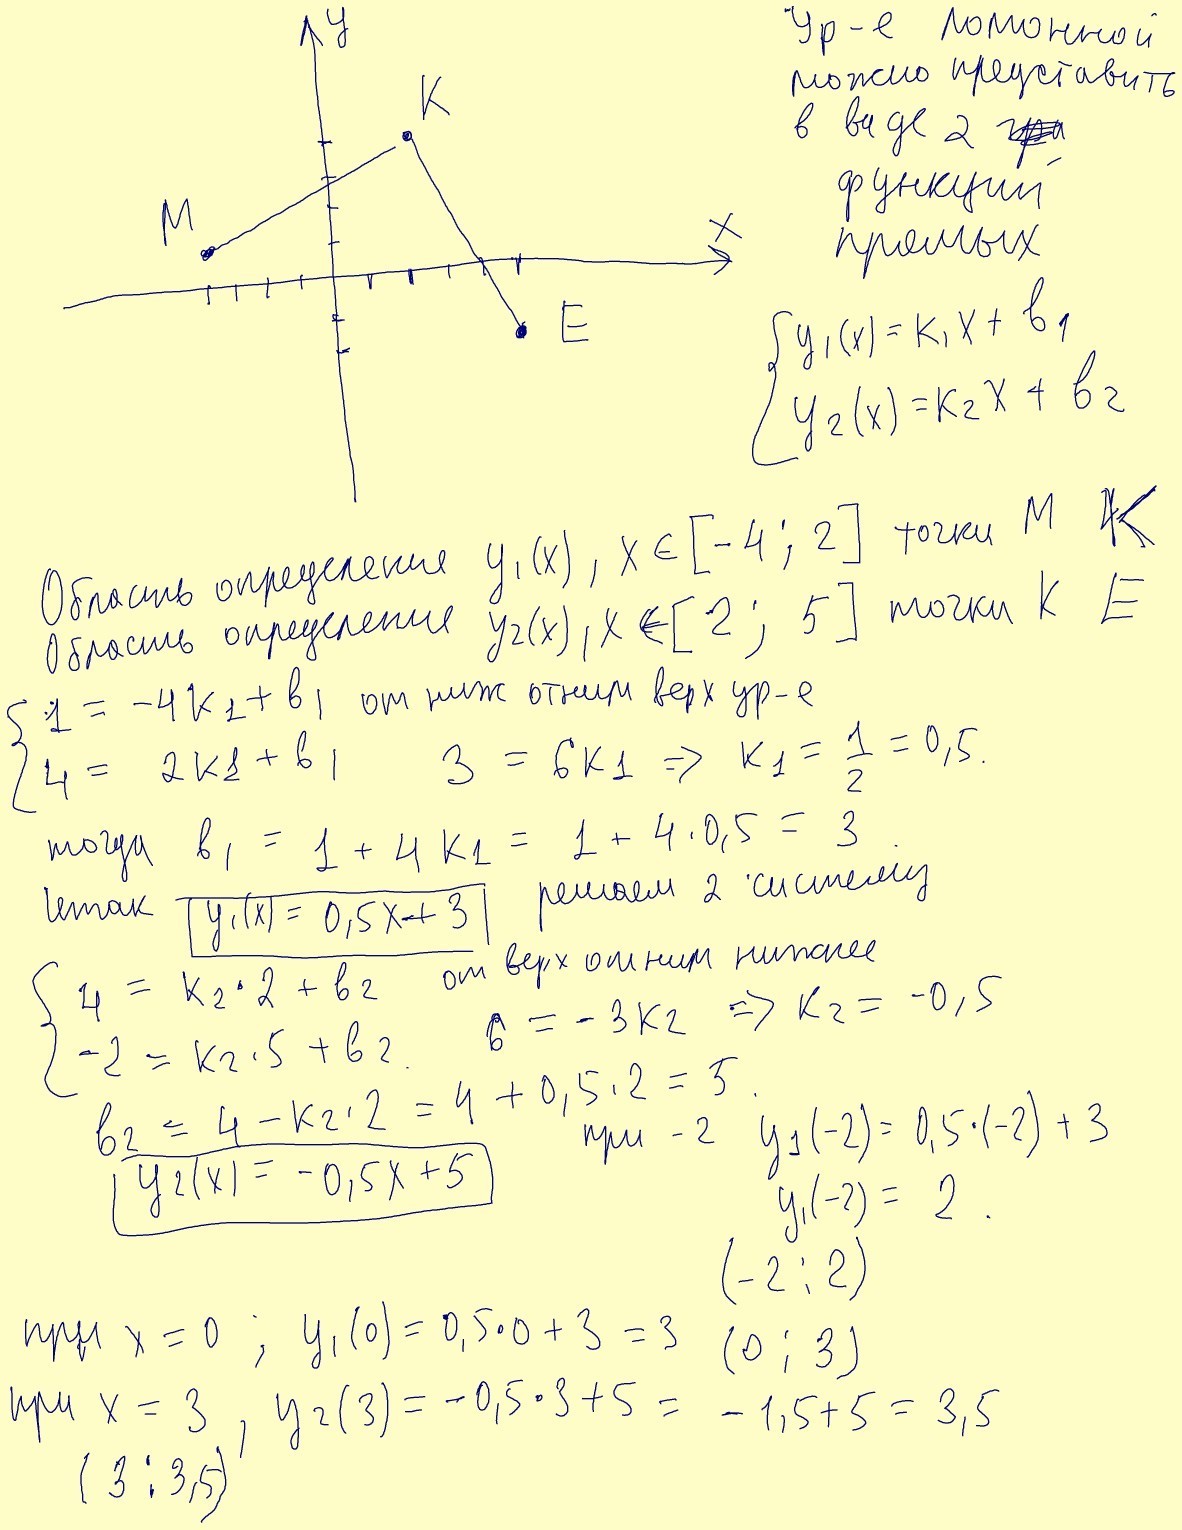 y
K
M
x
E
Ур-е ломонной
можно представить
в виде 2
функций
прямых
y₁(x) = K₁X + b₁
y₂(x) = K₂X + b₂
Область определения y₁(x), x ∈ [-4; 2] точки M K
Область определения y₂(x), x ∈ [2; 5] точки K E
1 = -4K₁ + b₁ от ниж отним верх ур-е
4 = 2K1 + b₁ 3 = 6K1 => K₁ = 1/2 = 0,5.
тогда b₁ = 1 + 4K₁ = 1 + 4·0,5 = 3
Итак y₁(x) = 0,5x + 3 решаем 2 систему
4 = K₂·2 + b₂ от верх отним нижнее
-2 = K₂·5 + b₂. 6 = -3K₂ => K₂ = -0,5
b₂ = 4 - K₂·2 = 4 + 0,5·2 = 5.
y₂(x) = -0,5x + 5
при -2 y₁(-2) = 0,5·(-2) + 3
y₁(-2) = 2.
(-2; 2)
при x = 0; y₁(0) = 0,5·0 + 3 = 3 (0; 3)
при x = 3, y₂(3) = -0,5·3 + 5 = -1,5 + 5 = 3,5
(3; 3,5)